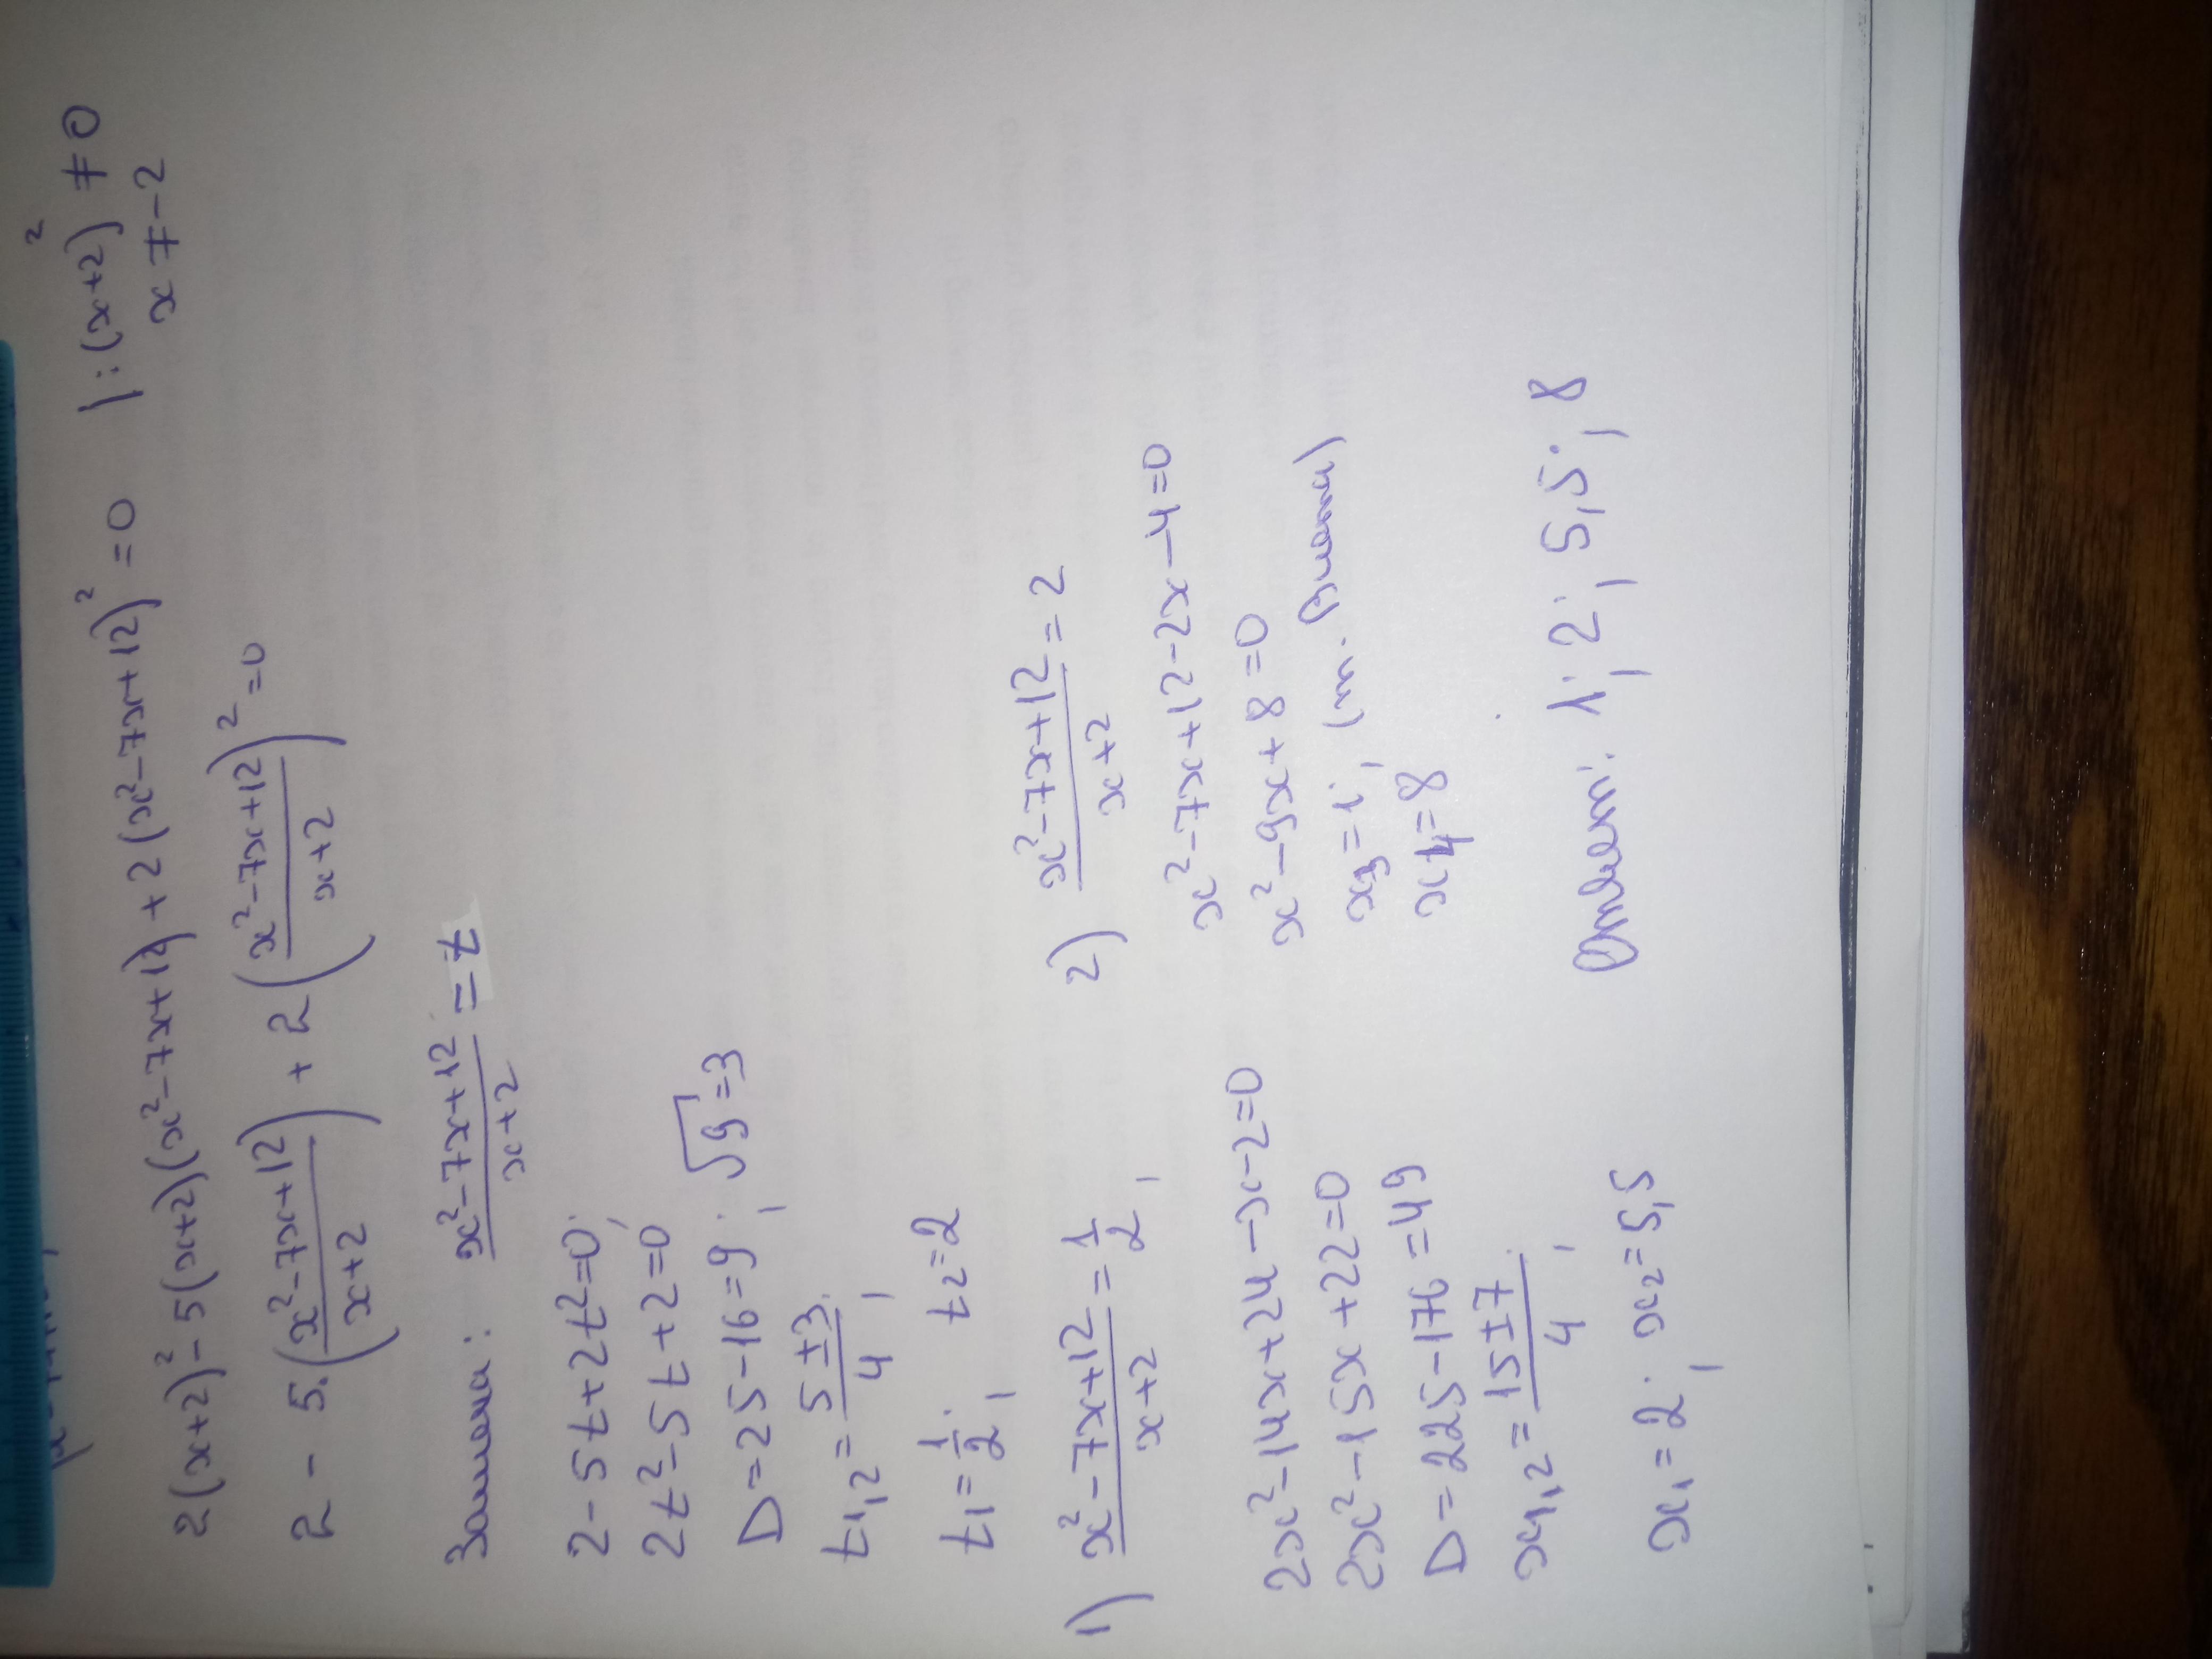 2(x+2)²-5(x+2)(x²-7x+12)+2(x²-7x+12)²=0 |:(x+2)²≠0
x≠-2
2-5·((x²-7x+12)/(x+2))+2((x²-7x+12)/(x+2))²=0
Замена: (x²-7x+12)/(x+2)=t
2-5t+2t²=0;
2t²-5t+2=0
D=25-16=9; √9=3
t1,2=(5±3)/4;
t1=1/2; t2=2
1) (x²-7x+12)/(x+2)=1/2;
2x²-14x+24-x-2=0
2x²-15x+22=0
D=225-176=49
x1,2=(15±7)/4;
x1=2; x2=5,5
2) (x²-7x+12)/(x+2)=2
x²-7x+12-2x-4=0
x²-9x+8=0
x3=1; (т. Виета)
x4=8
Ответ: 1; 2; 5,5; 8